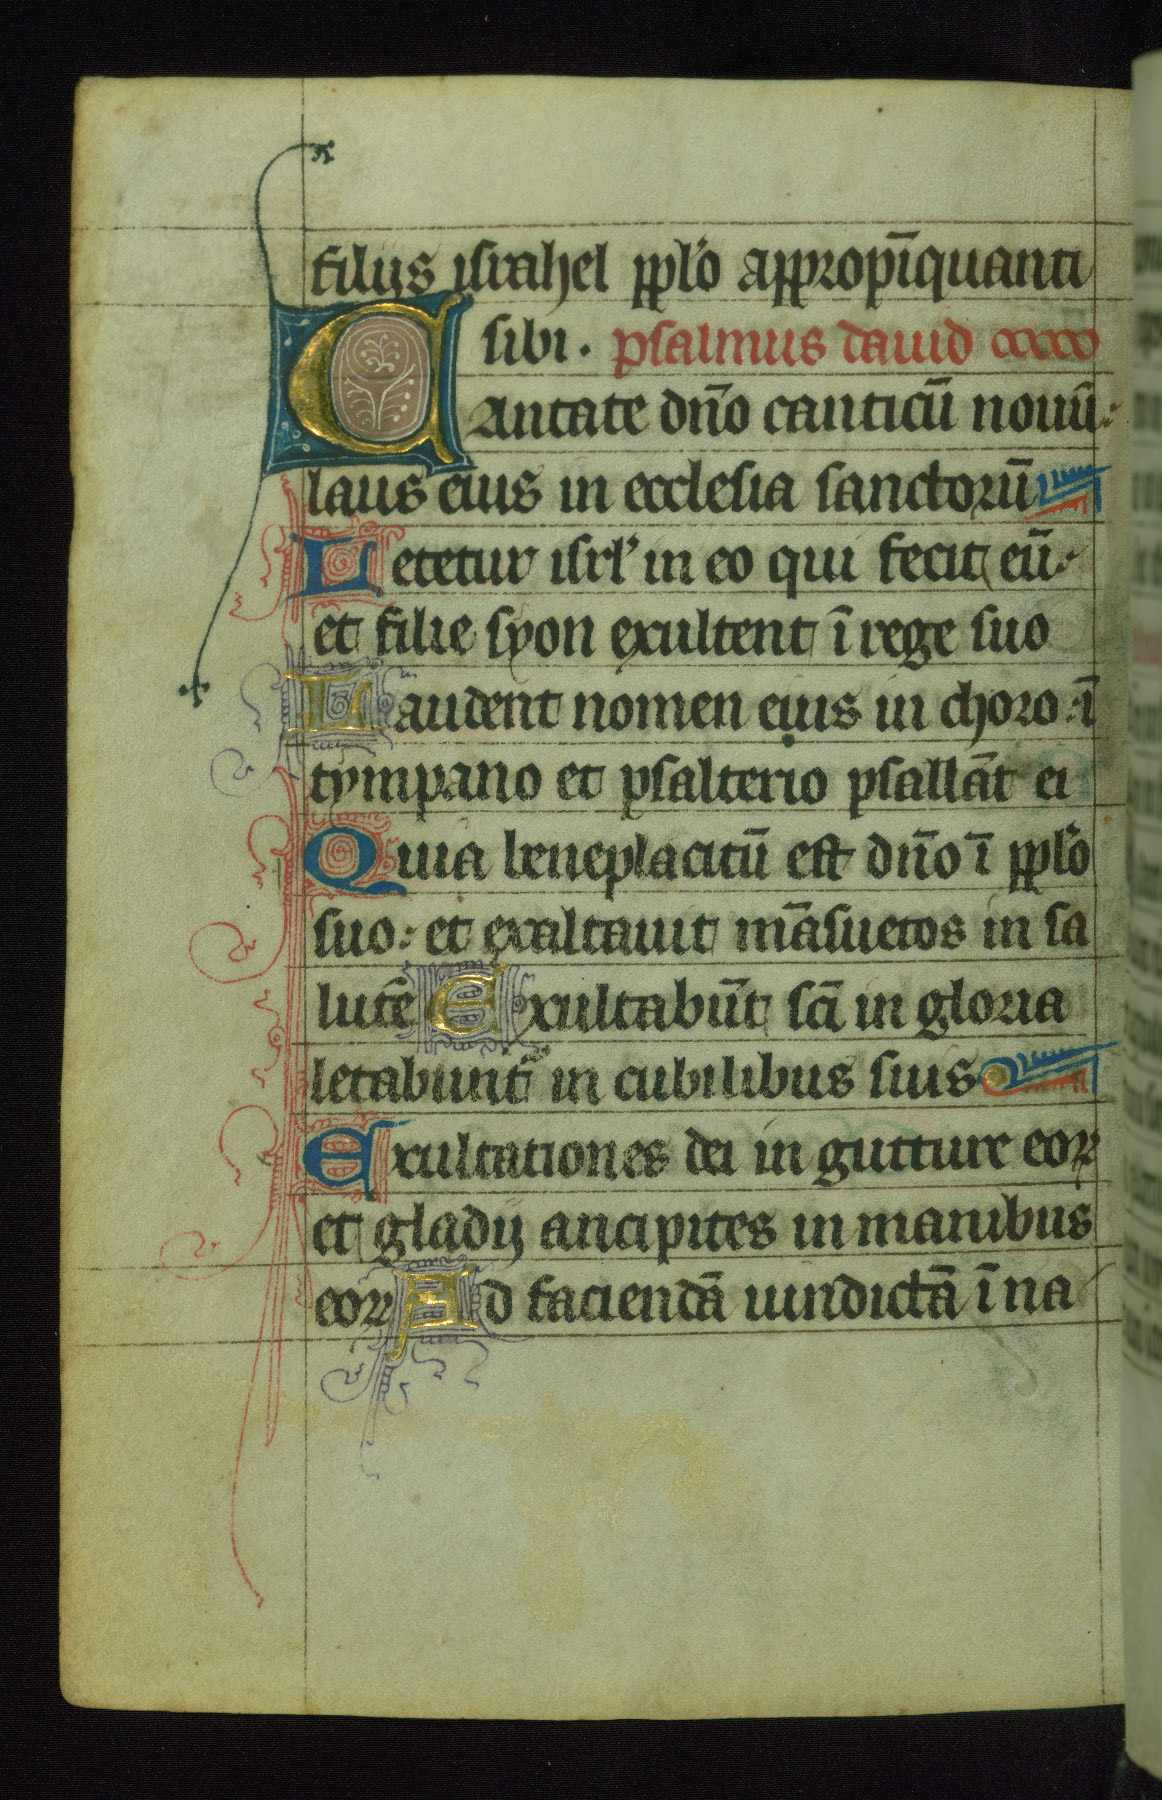 filijs israhel ppl'o appropīquanti
sibi. psalmus dauid
Cantate dn̄o canticū nouū:
laus eius in ecclesia sanctorū
Letetur isrl' in eo qui fecit eū:
et filie syon exultent ī rege suo
Laudent nomen eius in choro: ī
tympano et psalterio psallāt ei
Quia beneplacitū est dn̄o ī ppl'o
suo: et exaltauit māsuetos in sa
lutē Exultabūt sc̄i in gloria
letabunt̄ in cubilibus suis
Exultationes dei in gutture eoꝝ
et gladij ancipites in manibus
eoꝝ Ad faciendā uindictā ī na